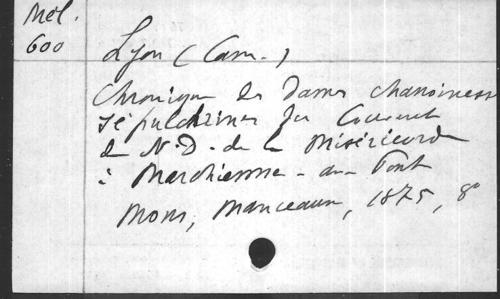 Mél.
600
Lyon (Cam.)
Chronique des Dames chanoinesses
sépulchrines du Couvent
de N.-D. de la Miséricorde
à Marchienne-au-Pont
Mons, Manceaux, 1875, 8°